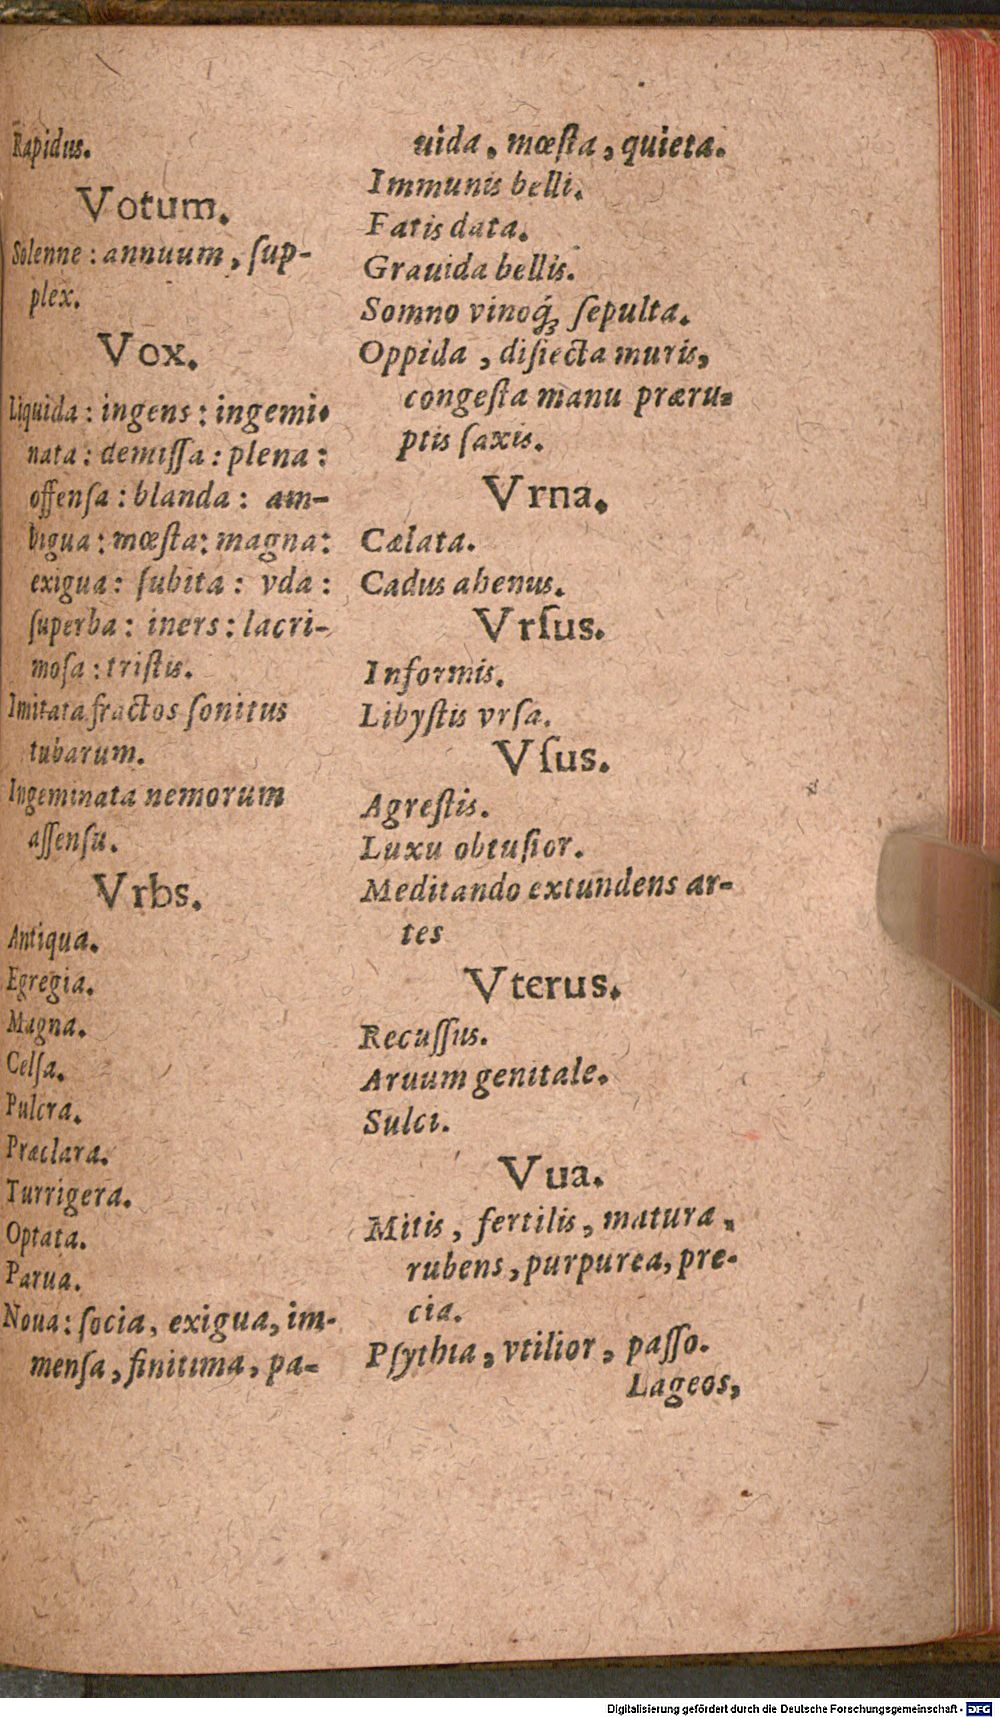 Rapidus.
Votum.
Solenne : annuum, ſup-
plex.
Vox.
Liquida : ingens : ingemi-
nata : demiſſa : plena :
offenſa : blanda : am-
bigua : mœſta : magna :
exigua : ſubita : vda :
ſuperba : iners : lacri-
moſa : triſtis.
Imitata fractos ſonitus
tubarum.
Ingeminata nemorum
aſſenſu.
Vrbs.
Antiqua.
Egregia.
Magna.
Celſa.
Pulcra.
Præclara.
Turrigera.
Optata.
Parua.
Noua : ſocia, exigua, im-
menſa, finitima, pa-
uida, mœſta, quieta.
Immunis belli.
Fatis data.
Grauida bellis.
Somno vinoq́; ſepulta.
Oppida, diſiecta muris,
congeſta manu præru-
ptis ſaxis.
Vrna.
Cælata.
Cadus ahenus.
Vrſus.
Informis.
Libyſtis vrſa.
Vſus.
Agreſtis.
Luxu obtuſior.
Meditando extundens ar-
tes
Vterus.
Recuſſus.
Aruum genitale.
Sulci.
Vua.
Mitis, fertilis, matura,
rubens, purpurea, pre-
cia.
Pſythia, vtilior, paſſo.
Lageos,
Digitalisierung gefördert durch die Deutsche Forschungsgemeinschaft - DFG